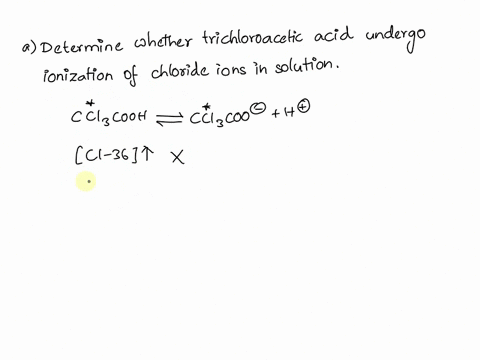 a) Determine whether trichloroacetic acid undergo
ionization of chloride ions in solution.
CCl*3COOH ⇌ CCl*3COO⊖ + H⊕
[Cl-36]↑ X